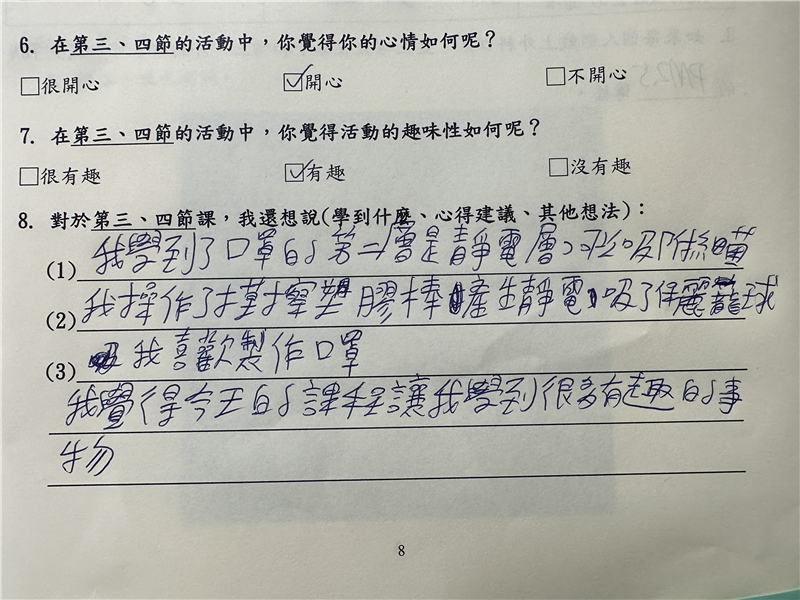 6. 在第三、四節的活動中，你覺得你的心情如何呢？
□很開心 ☑開心 □不開心
7. 在第三、四節的活動中，你覺得活動的趣味性如何呢？
□很有趣 ☑有趣 □沒有趣
8. 對於第三、四節課，我還想說(學到什麼、心得建議、其他想法)：
(1) 我學到了口罩的第二層是靜電層，可以吸附細菌
(2) 我操作了摩擦塑膠棒產生靜電，吸了保麗龍球
(3) 我喜歡製作口罩
我覺得今天的課程讓我學到很多有趣的事
物
8
PM2.5